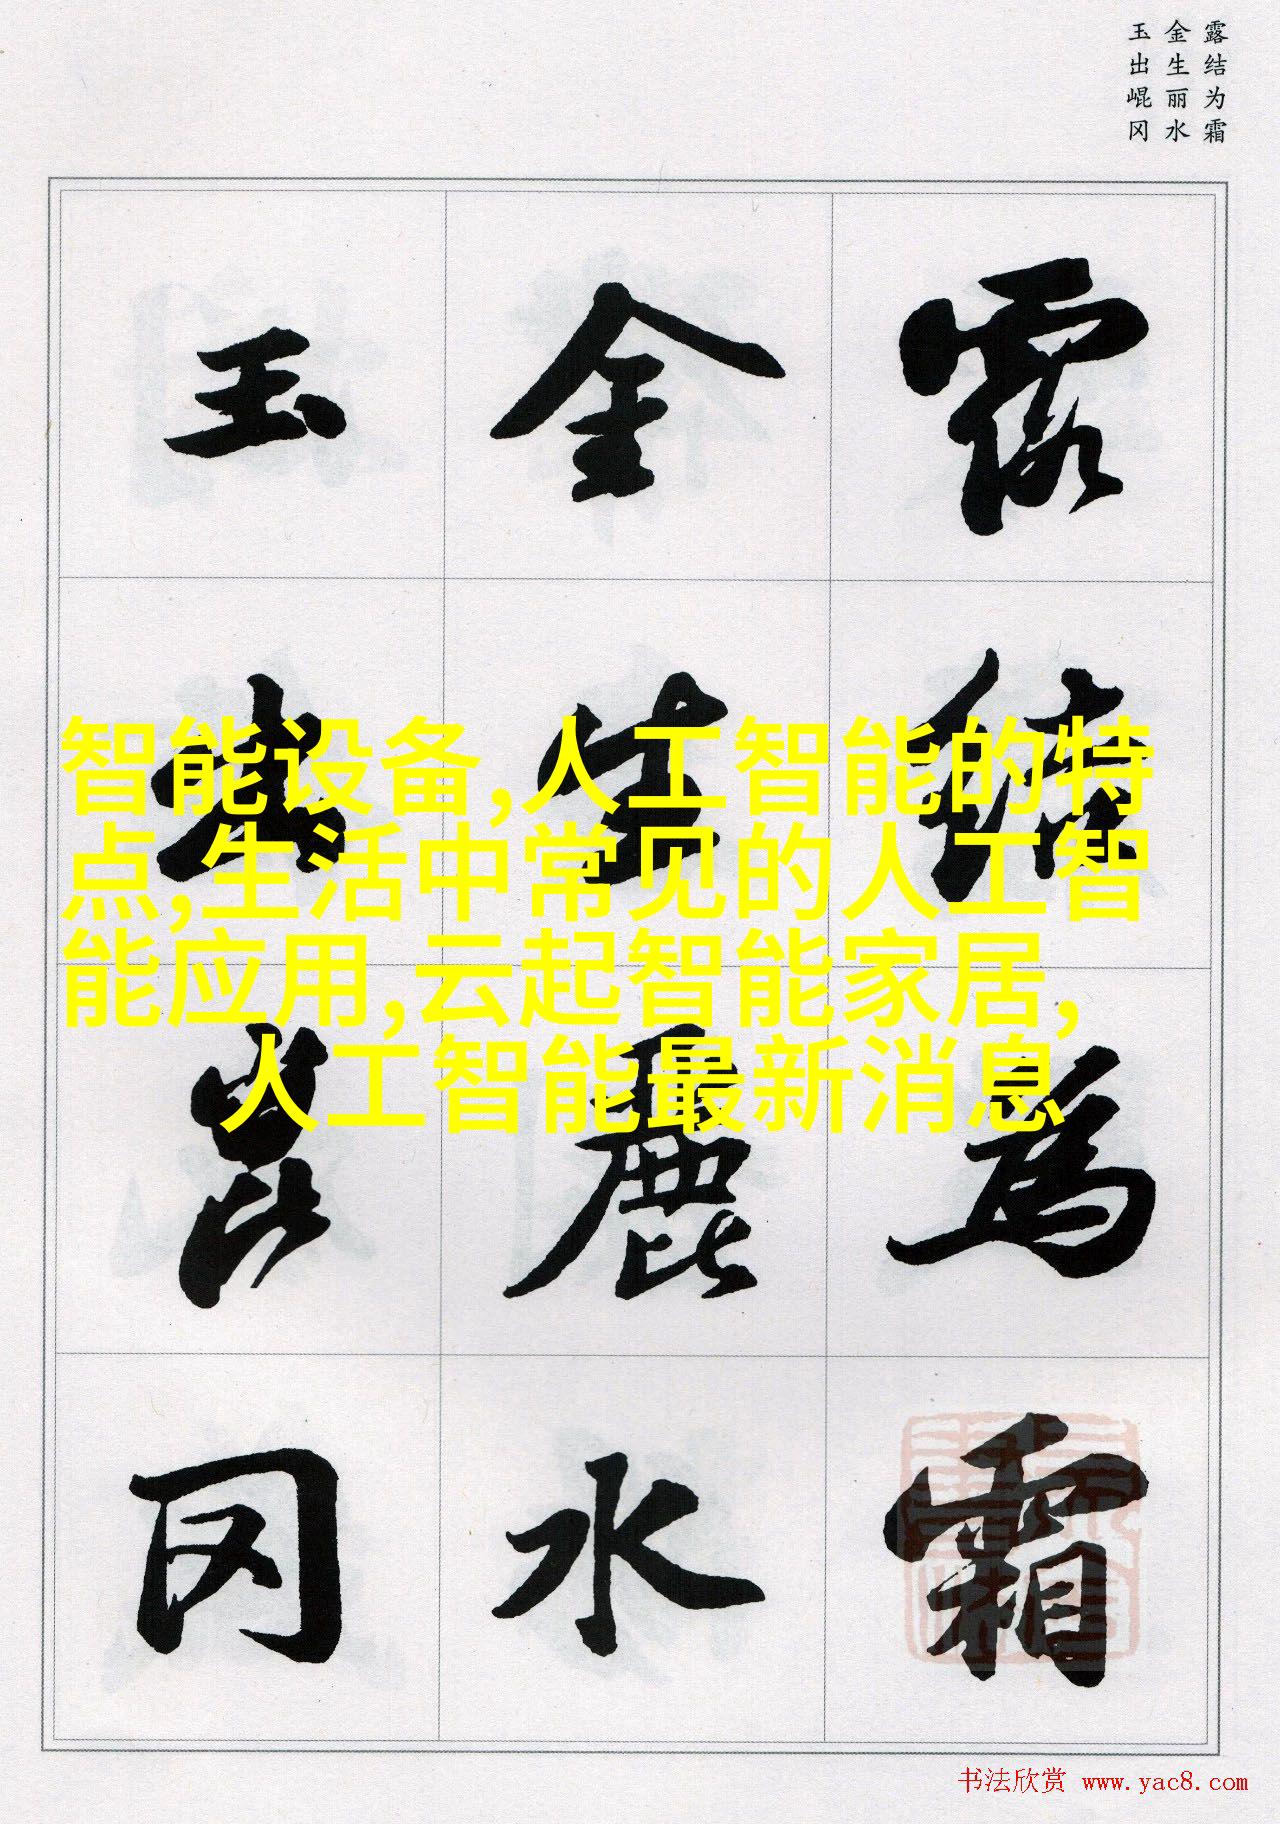 露结为霜
金生丽水
玉出崐冈
露結為霜
金生麗水
玉出崑冈
智能设备,人工智能的特
点,生活中常见的人工智
能应用,云起智能家居,
人工智能最新消息
书法欣赏 www.yac8.com